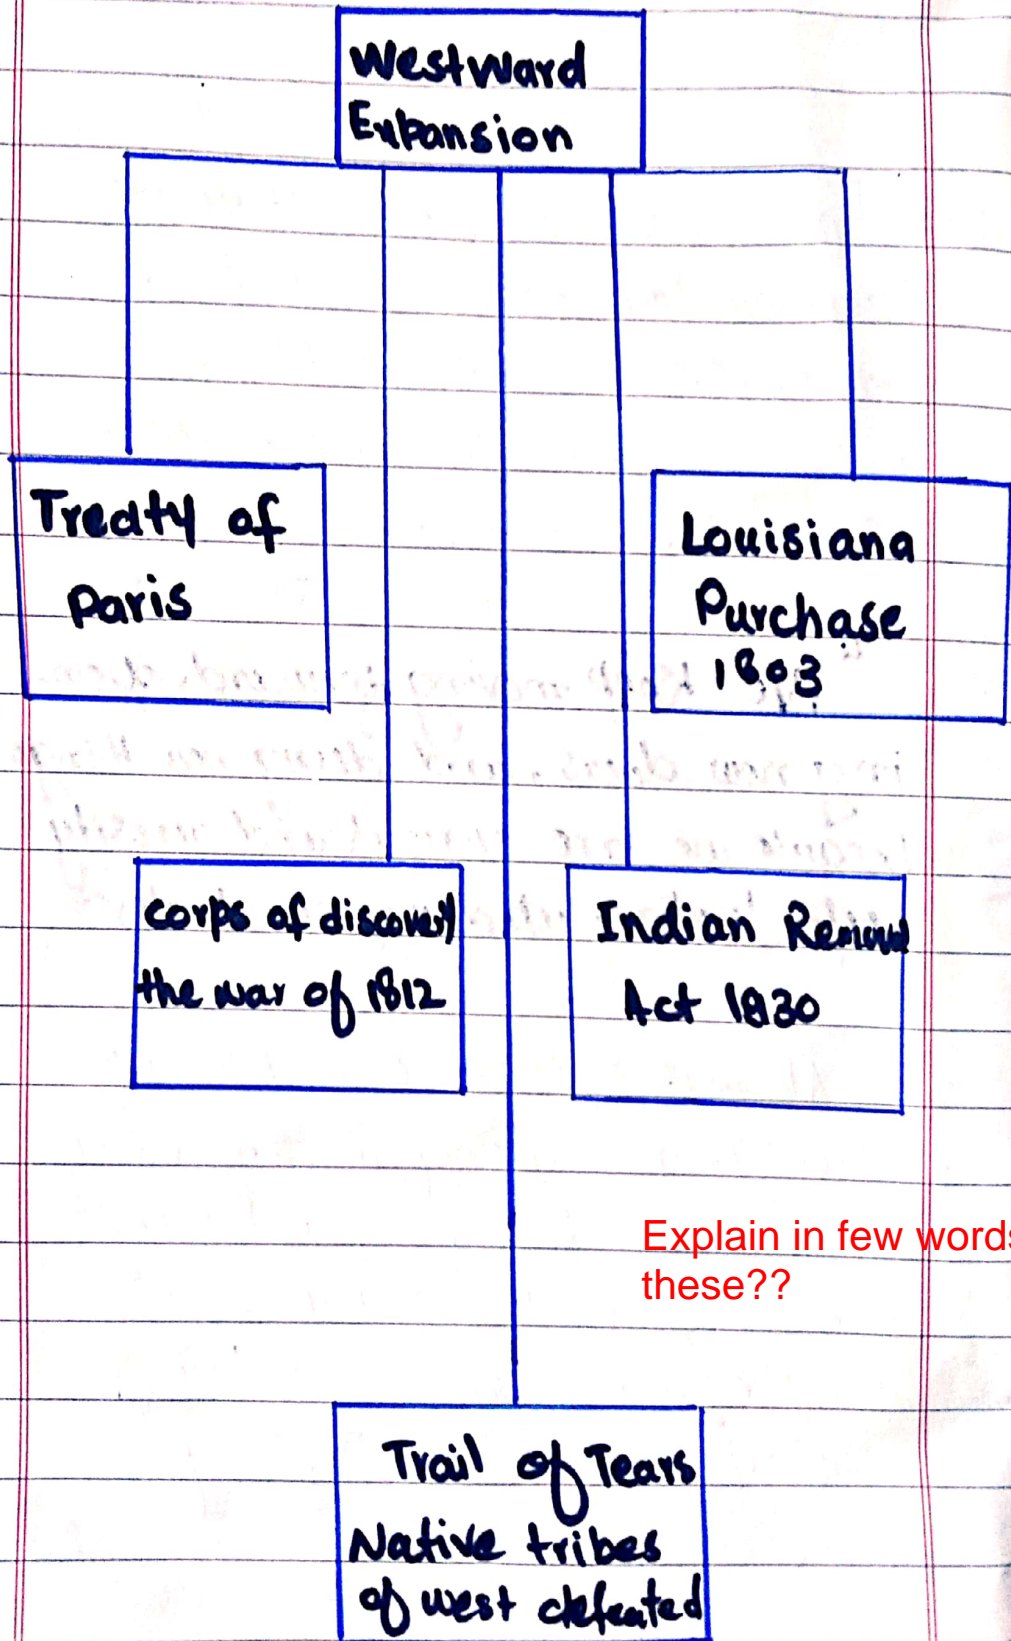 Westward
Expansion
Treaty of
Paris
Louisiana
Purchase
1803
corps of discovery
the war of 1812
Indian Removal
Act 1830
Explain in few words
these??
Trail of Tears
Native tribes
of west defeated